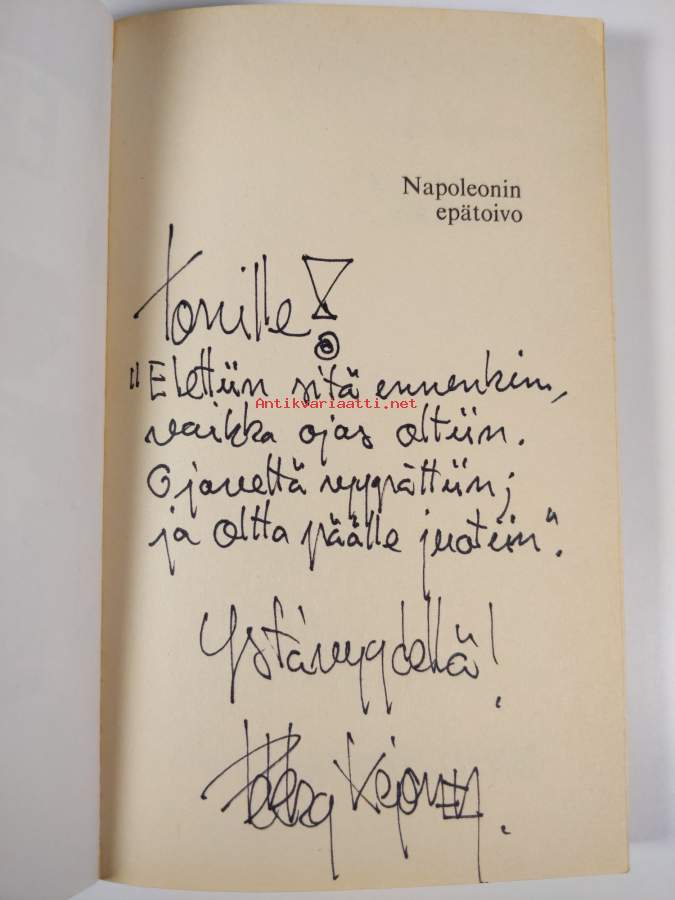 Napoleonin
epätoivo
Tonille!
"Elettiin sitä ennenkin,
Antikvariaatti.net
vaikka ojas oltiin.
Ojavettä ryypättiin;
ja oltta päälle juotiin".
Ystävyydellä!
Pekka Kejonen.